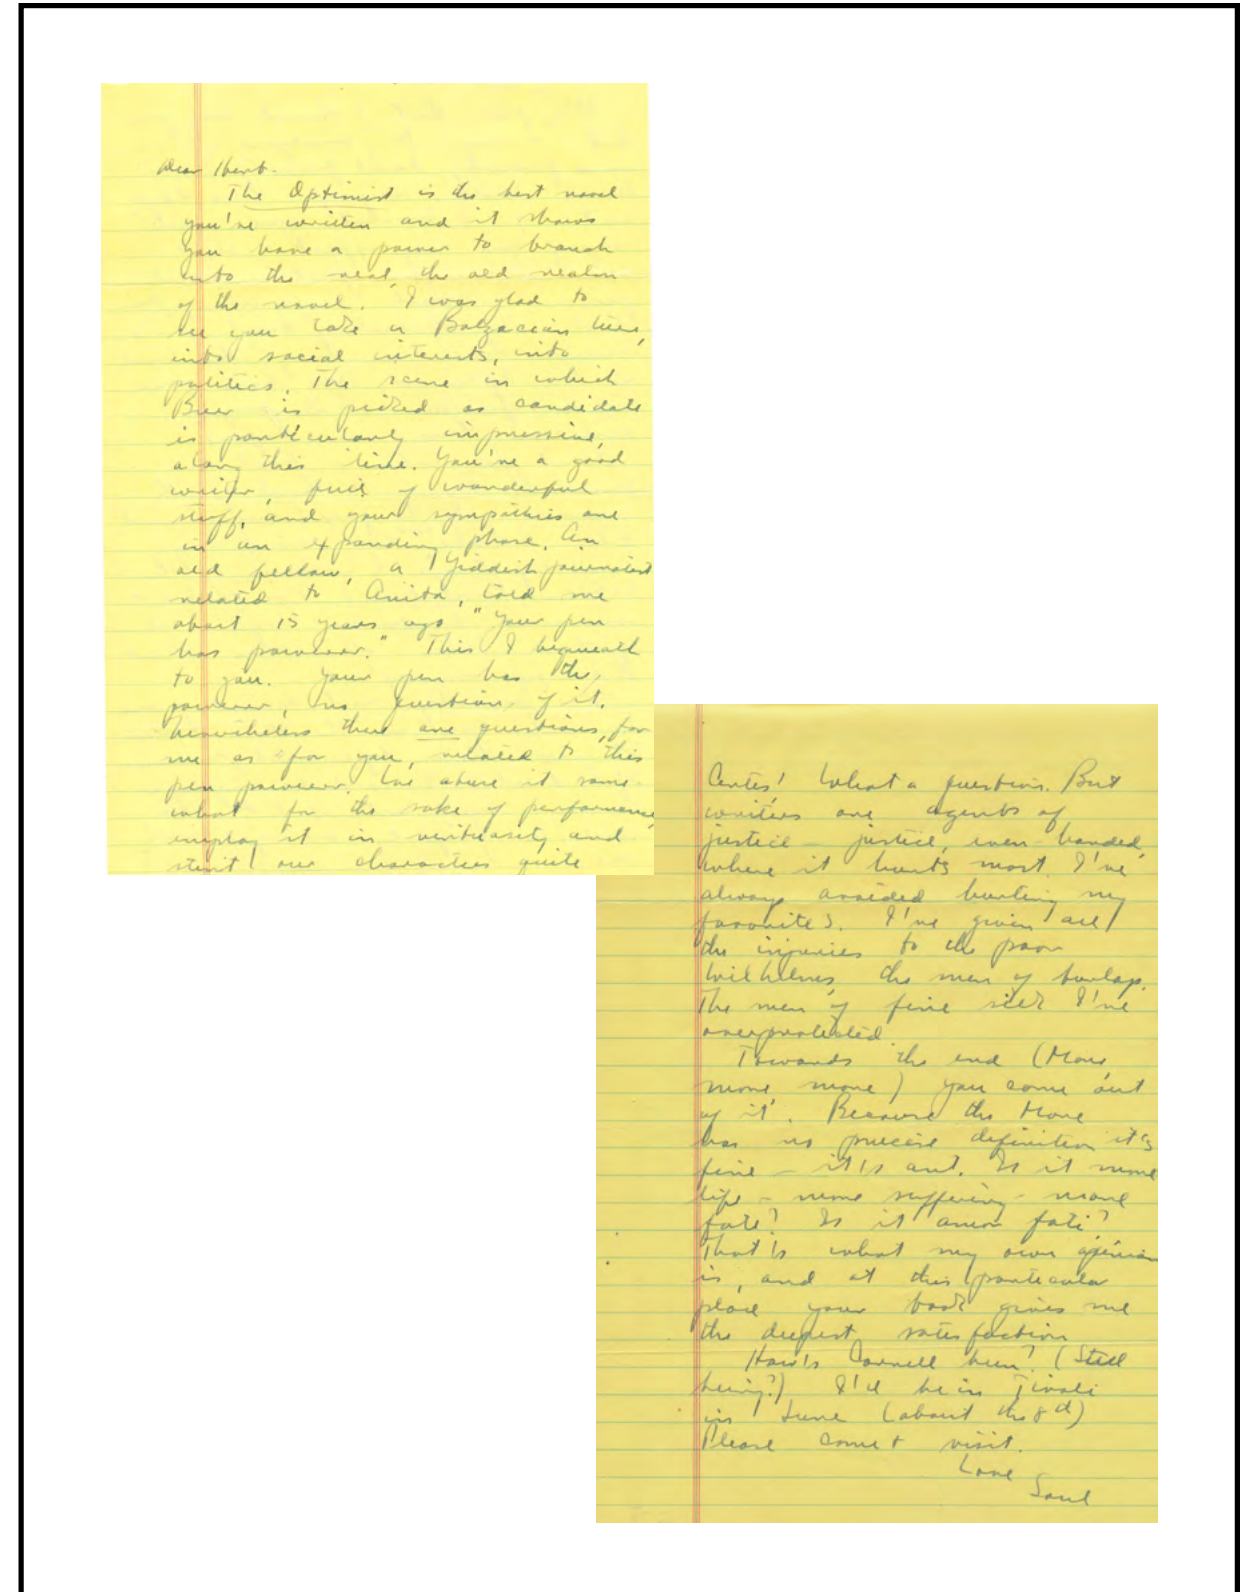 Dear Herb.
The Optimist is the best novel
you've written and it shows
you have a power to branch
into the real, the old realm
of the novel. I was glad to
see you take a Balzacian turn,
into social interests, into
politics. The scene in which
Burr is picked as candidate
is particularly impressive,
along this line. You're a good
writer, full of wonderful
stuff, and your sympathies are
in an expanding phase. An
old fellow, a Yiddish journalist
related to Anita, told me
about 15 years ago "Your pen
has powerer." This I bequeath
to you. Your pen has the
powerer, no question of it.
Nevertheless there are questions, for
me as for you, related to this
pen powerer. We abuse it some-
what for the sake of performance,
employ it in virtuosity and
stint our characters quite
What a question. But
writers are agents of
justice – justice, even-handed,
where it hurts most. I've
always avoided hurting my
favorites. I've given all
the injuries to the poor
Wilhelms, the men of burlap.
The men of fine silk I've
overprotected.
Towards the end (More,
more, more) you come out
of it. Because the More
has no precise definition it's
fine – it's art. Is it more
life – more suffering – more
fate? Is it amor fati?
That's what my own opinion
is, and at this particular
place your book gives me
the deepest satisfaction
How's Cornell been? (Still
being?) I'll be in Tivoli
in June (about the 8th)
Please come & visit.
Love
Saul